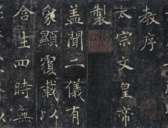 教序
太宗文皇帝
製
盖聞二儀有
象顯覆載以
含生四時無